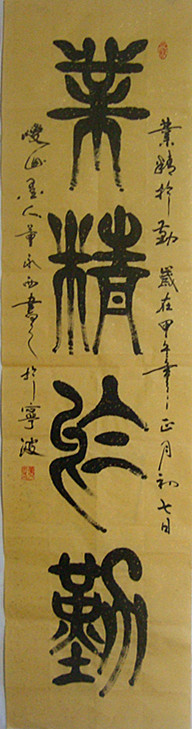 業精於勤
業精於勤 歲在甲午年正月初七日
山墨人董永西書於寧波